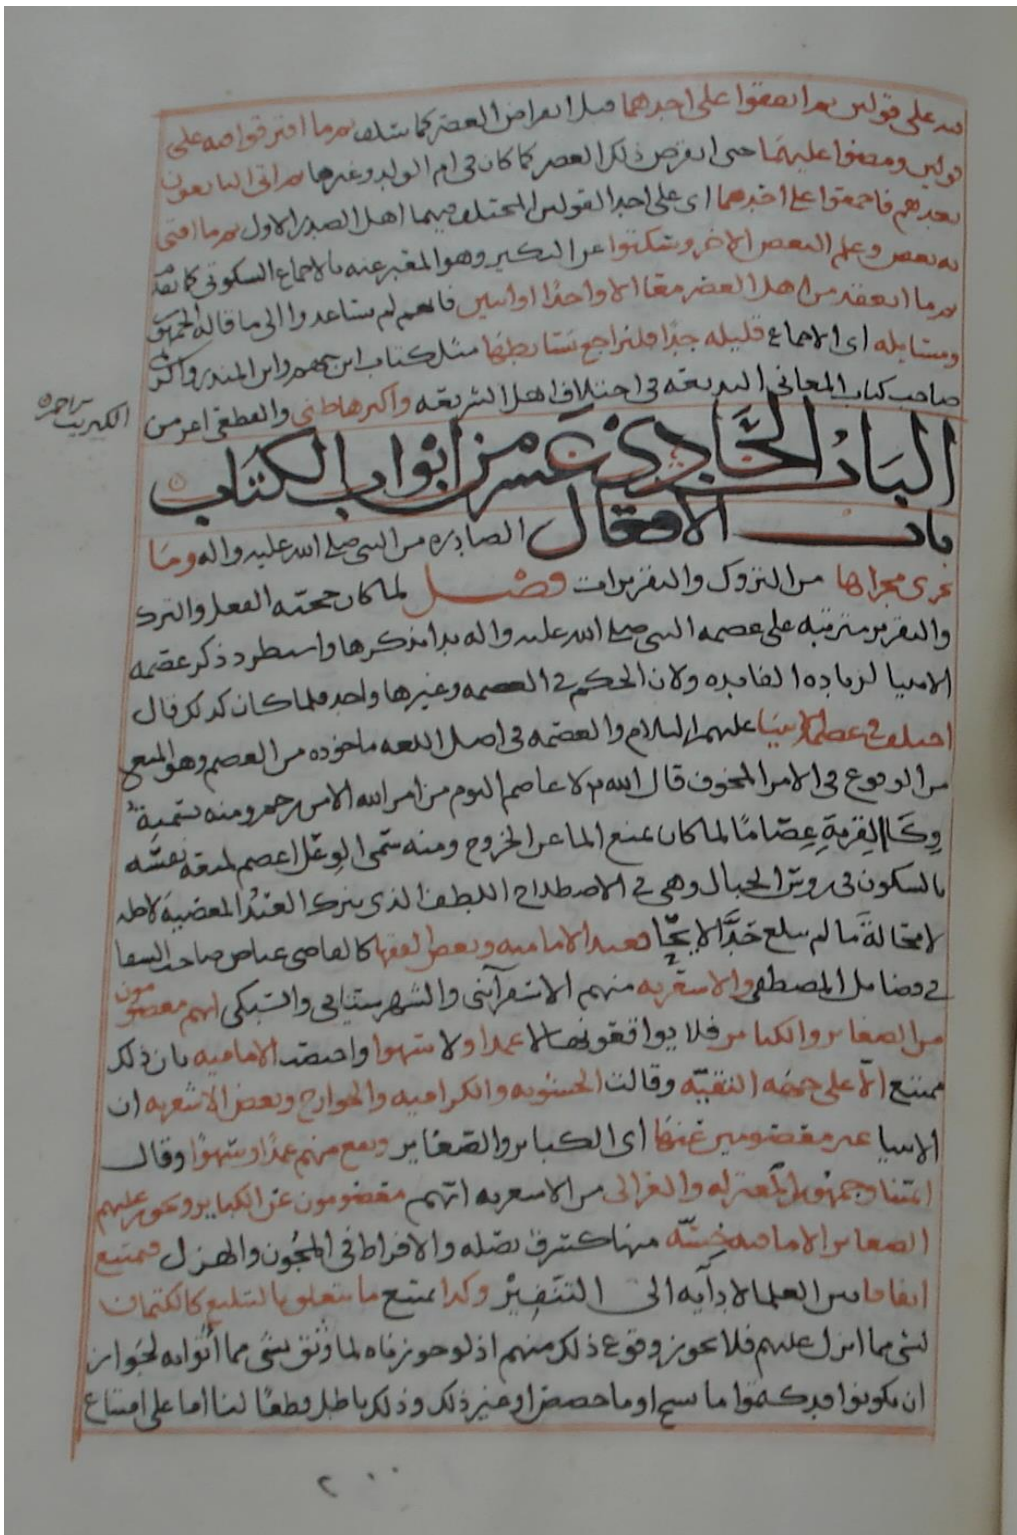 فيه على قولين ثم اتفقوا على احدهما قبل انقراض العصر كما سلف ثم ما افترقوا فيه على
قولين ومضوا عليهما حتى انقرض ذلك العصر كما كان في ام الولد وغيرها ثم اتى التابعون
بعدهم فاجمعوا على احدهما اي على احد القولين المختلف فيهما اهل الصدر الاول ثم ما افتى
به بعض وعلم البعض الاخر وسكتوا عن النكير وهو المعبر عنه بالاجماع السكوتي كما تقدم
ثم ما انعقد من اهل العصر معا الا واحدا او اثنين فانهم لم يساعدوا الى ما قاله الجمهور
ومسايله اي الاجماع قليله جدا فلتراجع بسايطها مثل كتاب ابن جهم وابن المنذر واكثر
صاحب كتاب المعاني البديعه في اختلاف اهل الشريعه واكثرها ظني والقطعي اعز من
الكبريت الاحمر
الباب الحادي عشر من ابواب الكتاب
باب الافعال الصادره من النبي صلى الله عليه واله وما
يجري مجراها من التروك والتقريرات فصل لما كان حجته الفعل والترك
والتقرير مترتبه على عصمه النبي صلى الله عليه واله بدا بذكرها واستطرد ذكر عصمه
الانبيا لزياده الفايده ولان الحكم في العصمه وغيرها واحد فلما كان كذلك قال
اختلف في عصمه الانبيا عليهم السلام والعصمه في اصل اللغه ماخوذه من العصم وهو المنع
من الوقوع في الامر المخوف قال الله تع لا عاصم اليوم من امر الله الا من رحم ومنه تسمية
وِكَا القِربةِ عِصَامًا لما كان يمنع الما عن الخروج ومنه سمي الوعل اعصم لمنعه نفسه
بالسكون في روس الجبال وهي في الاصطلاح اللطف الذي يترك العبد المعصية لاجله
لا محالة ما لم يبلغ حَدَّ الالجا فعند الاماميه وبعض الفقها كالقاضي عياض صاحب الشفا
في فضايل المصطفى والاشعريه منهم الاسفرآئني والشهرستاني والسبكي انهم معصومون
من الصغاير والكباير فلا يواقعونها لا عمدا ولا سهوا واختصت الاماميه بان ذلك
ممتنع الا على جهه التقيه وقالت الحشويه والكراميه والخوارج وبعض الاشعريه ان
الانبيا غير معصومين عنها اي الكباير والصغاير وتقع منهم عمدا وسهوا وقال
ائمتنا وجمهور المعتزله والغزالي من الاشعريه انهم معصومون عن الكباير ويجوز عليهم
الصغاير الا ما فيه خِسَّه منها كسرقه بصله والافراط في المجُون والهزل فيمتنع
اتفاقا بين العلما لادآيه الى التنفير وكذا يمتنع ما يتعلق بالتبليغ كالكتمان
لشي مما انزل عليهم فلا يجوز وقوع ذلك منهم اذ لو جوزناه لما وثق بشي مما أتوا به لجواز
ان يكونوا قد كتموا ما نسخ او ما خصص او غير ذلك وذلك باطل قطعا لنا اما على امتناع
٢٠٠